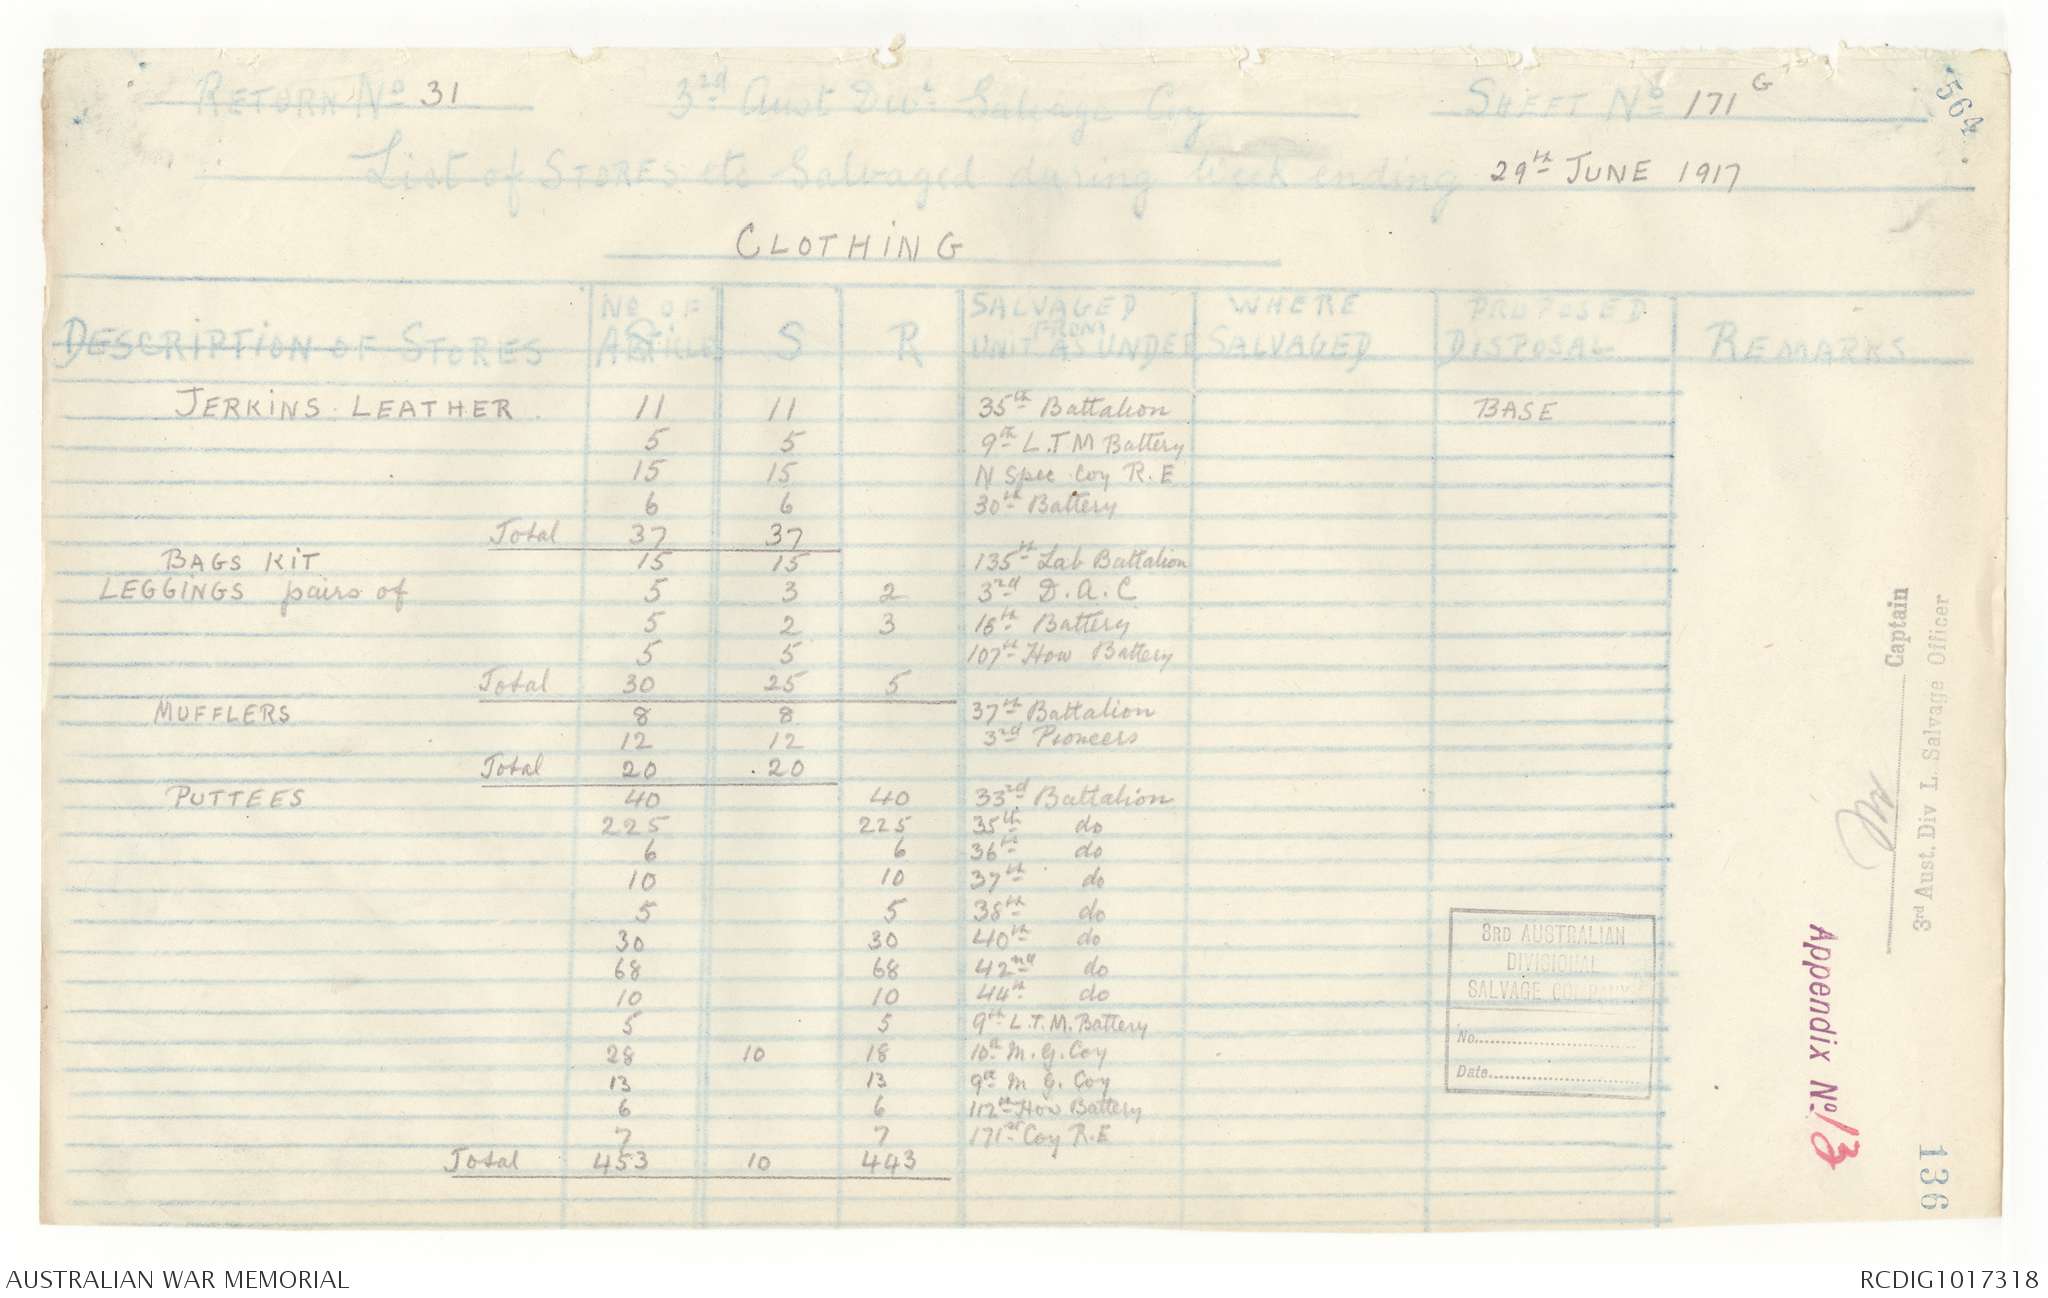 RETURN No 31 3rd Aust Divl Salvage Coy SHEET No 171 G
564
List of STORES etc Salvaged during Week ending 29th JUNE 1917
CLOTHING
DESCRIPTION OF STORES No OF ARTICLES S R SALVAGED FROM UNIT AS UNDER WHERE SALVAGED PROPOSED DISPOSAL REMARKS
JERKINS LEATHER. 11 11 35th Battalion BASE
5 5 9th L.T M Battery
15 15 N Spec Coy R.E
6 6 30th Battery
Total 37 37
BAGS KIT 15 15 135th Lab Battalion
LEGGINGS pairs of 5 3 2 3rd D.A.C
5 2 3 16th Battery
5 5 107th How Battery
Total 30 25 5
MUFFLERS 8 8 37th Battalion
12 12 3rd Pioneers
Total 20 20
PUTTEES 40 40 33rd Battalion
225 225 35th do
6 6 36th do
10 10 37th do
5 5 38th do
30 30 40th do
68 68 42nd do
10 10 44th do
5 5 9th L.T.M. Battery
28 10 18 10th M.G. Coy
13 13 9th M G. Coy
6 6 112th How Battery
7 7 171st Coy R.E
Total 453 10 443
3RD AUSTRALIAN
DIVISIONAL
SALVAGE COMPANY
No.
Date
Captain
3rd Aust. Div L. Salvage Officer
Appendix No. 13
136
AUSTRALIAN WAR MEMORIAL
RCDIG1017318